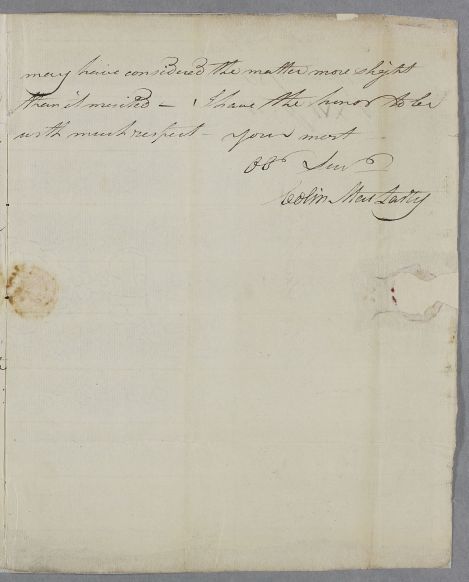 may have considered the matter more slight
than it merited — I have the honor to be
with much respect — your most
Obt Servt
Colin